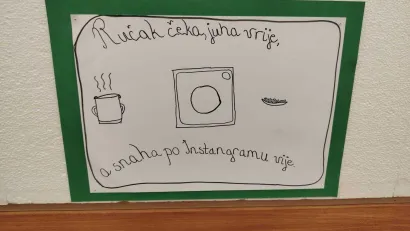 Ručak čeka, juha vrije,
a snaha po Instangramu vije.